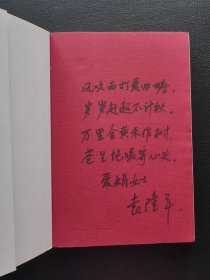 风吹雨打爱田畴，
岁岁赶超不计秋。
万里金黄禾作树
苍生饱暖寄心头。
爱娟女士
袁隆平